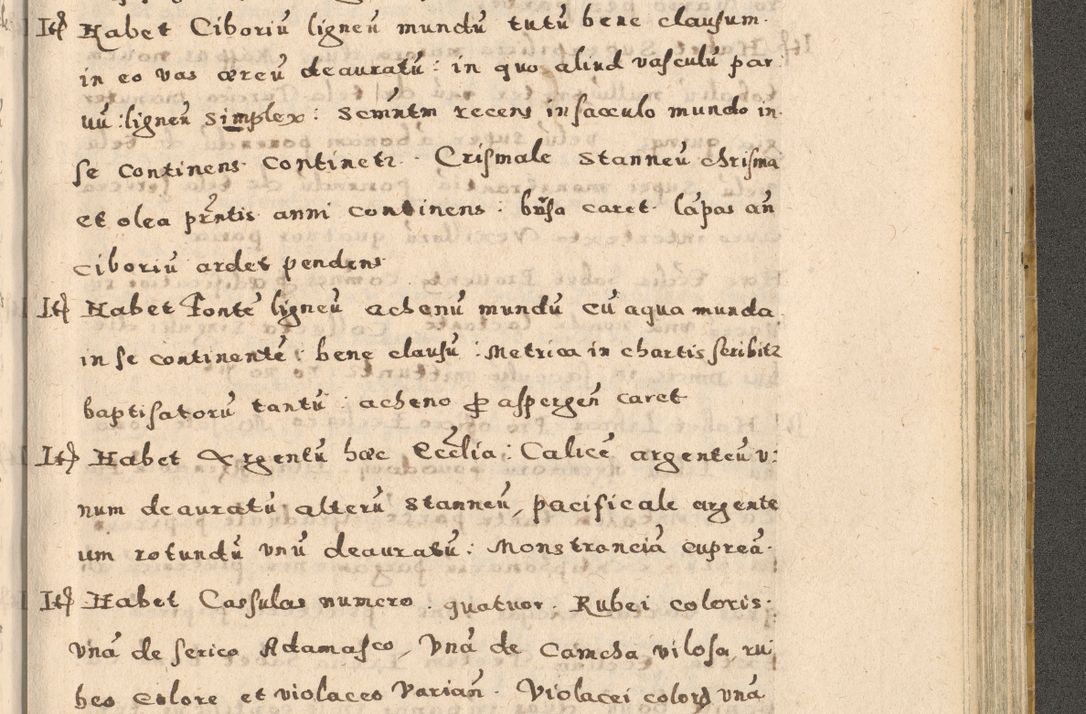 Itẽ Habet Ciboriũ ligneũ mundũ tutũ bene clausum.
in eo vas æreũ deauratũ: in quo aliud vasculũ par
vũ: ligneũ simplex: Scrmntm recens in sacculo mundo in
se continens continetr. Crismale stanneũ chrisma
et olea prntis anni continens: bursa caret lãpas añ
ciboriũ ardet pendens
Itẽ Habet Fontẽ ligneũ achenũ mundũ cũ aqua munda
in se continentẽ: bene clausũ: Metrica in chartis scribitr
baptisatorũ tantũ: acheno ꝓ aspergeñ caret
Itẽ Habet Argentũ hæc Ecclia: Calicẽ argenteũ v:
num deauratũ alterũ stanneũ, pacificale argente
um rotundũ vnũ deauratũ: Monstranciã cupreã.
Itẽ Habet Cassulas numero: quatuor. Rubei coloris:
vnã de serico Adamasco, Vnã de Camcha vilosa, ru
beo colore et violaceo variañ. Violacei colorꝭ vnã